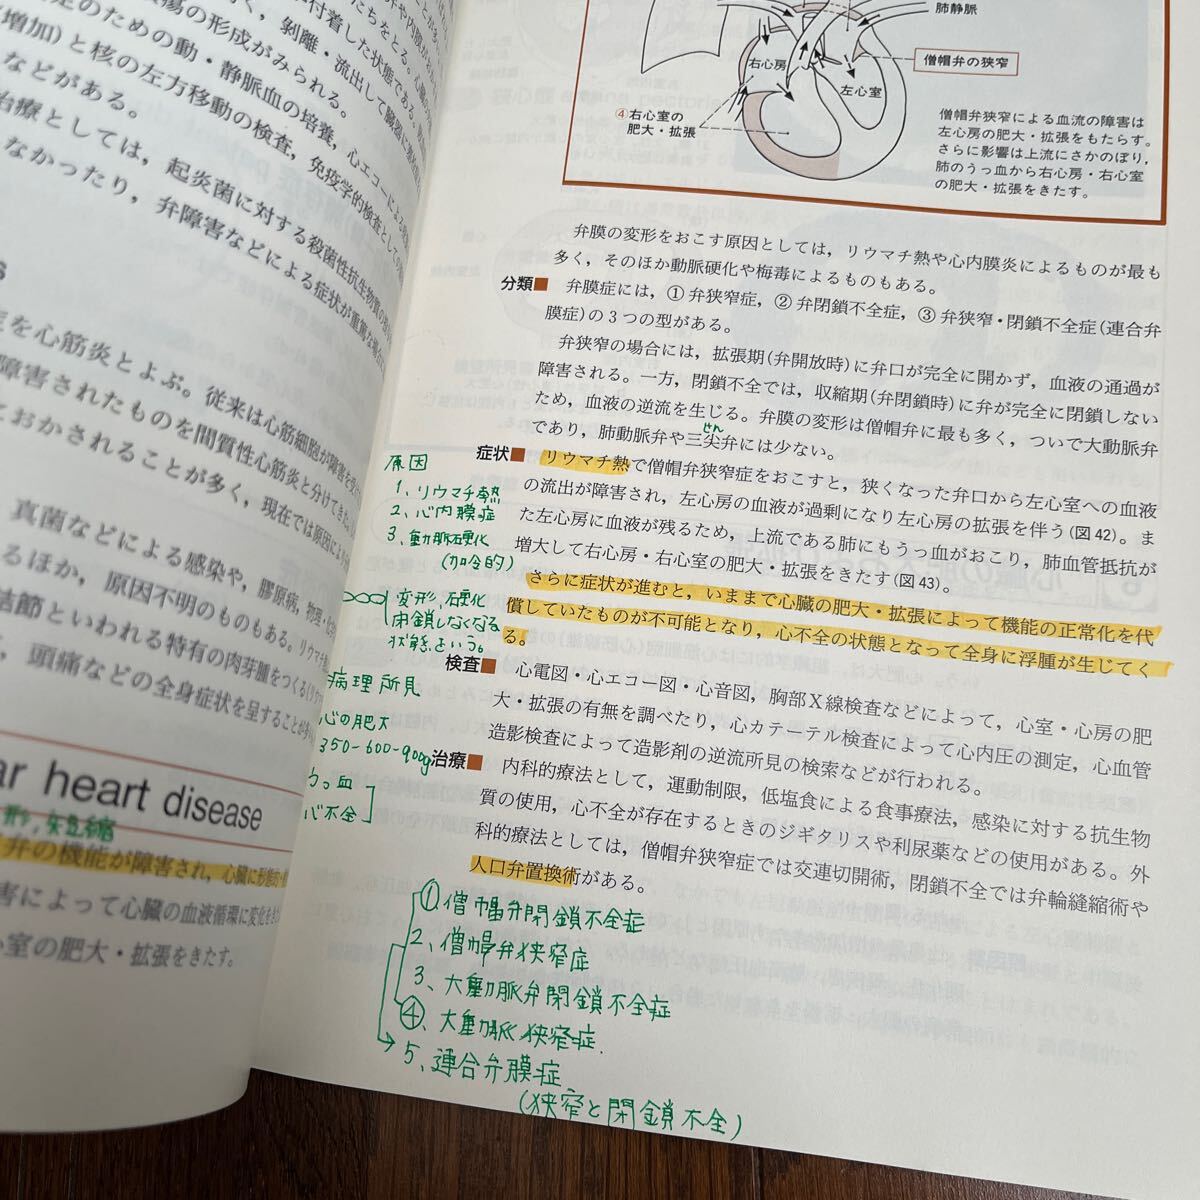 や内腔がお
付着した状態である。
たちをとる。心臓の
く，剝離・流出して臓器に
瘍の形成がみられる。
定のための動・静脈血の培養，心エコーによる
増加)と核の左方移動の検査，免疫学的検査としての
などがある。
治療としては，起炎菌に対する殺菌性抗生物質の
なかったり，弁障害などによる症状が重篤な場合
症を心筋炎とよぶ。従来は心筋細胞が障害を
障害されたものを間質性心筋炎と分けてきた。
におかされることが多く，現在では原因による
真菌などによる感染や，膠原病，物理・化学
るほか，原因不明のものもある。リウマチ
結節といわれる特有の肉芽腫をつくる(リウ
，頭痛などの全身症状を呈することが
ar heart disease
弁の機能が障害され，心臓に形態
害によって心臓の血液循環に変化を
心室の肥大・拡張をきたす。
肺静脈
右心房
僧帽弁の狭窄
左心室
④右心室の
肥大・拡張
僧帽弁狭窄による血流の障害は
左心房の肥大・拡張をもたらす。
さらに影響は上流にさかのぼり，
肺のうっ血から右心房・右心室
の肥大・拡張をきたす。
弁膜の変形をおこす原因としては，リウマチ熱や心内膜炎によるものが最も
多く，そのほか動脈硬化や梅毒によるものもある。
分類■ 弁膜症には，①弁狭窄症，②弁閉鎖不全症，③弁狭窄・閉鎖不全症(連合弁
膜症)の3つの型がある。
弁狭窄の場合には，拡張期(弁開放時)に弁口が完全に開かず，血液の通過が
障害される。一方，閉鎖不全では，収縮期(弁閉鎖時)に弁が完全に閉鎖しない
ため，血液の逆流を生じる。弁膜の変形は僧帽弁に最も多く，ついで大動脈弁
せん
であり，肺動脈弁や三尖弁には少ない。
症状■ リウマチ熱で僧帽弁狭窄症をおこすと，狭くなった弁口から左心室への血液
の流出が障害され，左心房の血液が過剰になり左心房の拡張を伴う(図42)。ま
た左心房に血液が残るため，上流である肺にもうっ血がおこり，肺血管抵抗が
増大して右心房・右心室の肥大・拡張をきたす(図43)。
さらに症状が進むと，いままで心臓の肥大・拡張によって機能の正常化を代
償していたものが不可能となり，心不全の状態となって全身に浮腫が生じてく
る。
検査■ 心電図・心エコー図・心音図，胸部X線検査などによって，心室・心房の肥
大・拡張の有無を調べたり，心カテーテル検査によって心内圧の測定，心血管
造影検査によって造影剤の逆流所見の検索などが行われる。
治療■ 内科的療法として，運動制限，低塩食による食事療法，感染に対する抗生物
質の使用，心不全が存在するときのジギタリスや利尿薬などの使用がある。外
科的療法としては，僧帽弁狭窄症では交連切開術，閉鎖不全では弁輪縫縮術や
人口弁置換術がある。
原因
1、リウマチ熱
2、心内膜症
3、動脈硬化
(加令的)
変形、硬化
閉鎖しなくなる
状態という。
病理所見
心の肥大
350-600-900g
うっ血
心不全
①僧帽弁閉鎖不全症
2、僧帽弁狭窄症
3、大動脈弁閉鎖不全症
④、大動脈狭窄症.
5、連合弁膜症
(狭窄と閉鎖不全)